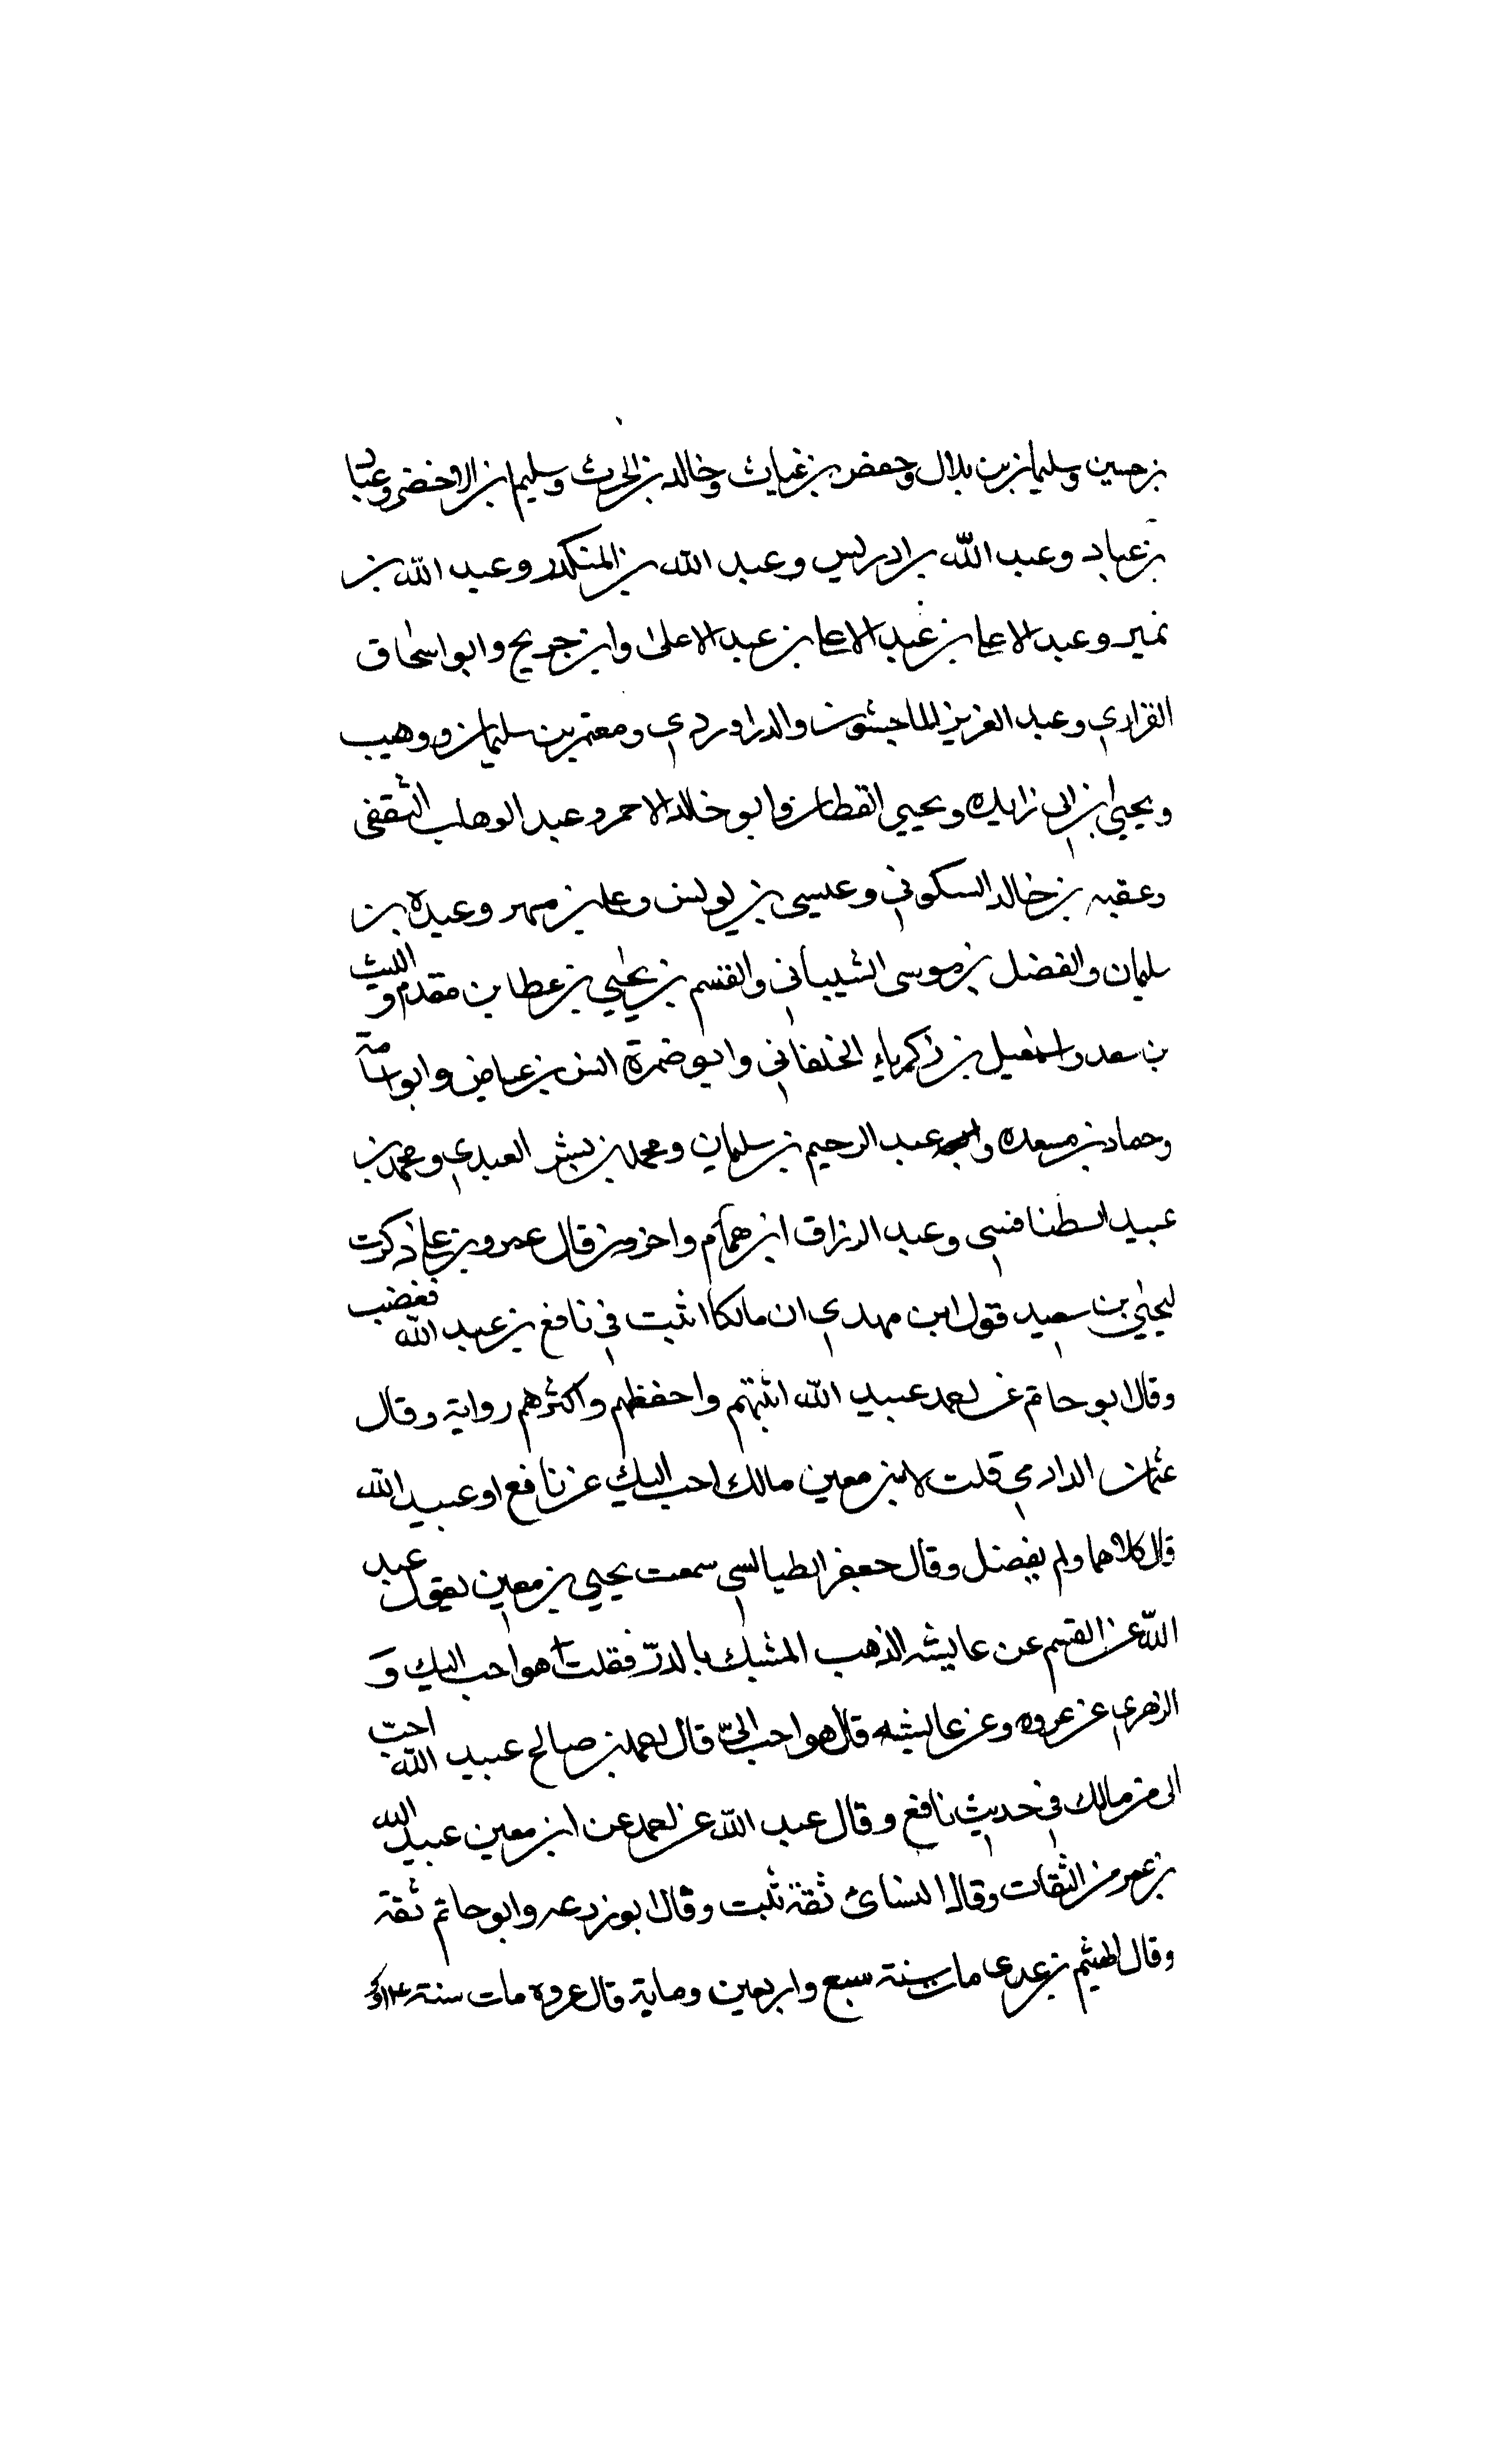 بن حسين وسليمان بن بلال وحفص بن غياث وخالد بن الحرث وسليم ابن الاخضر وعباد
بن عباد وعبد الله بن ادريس وعبد الله بن المنكدر وعبد الله بن
نمير وعبد الاعلى بن عبد الاعلى بن عبد الاعلى وابن جريج وابو اسحاق
الفزاري وعبد العزيز الماجشون والدراوردي ومعتمر بن سليمان ووهيب
ويحيى ابن ابي زايده ويحيي القطان وابو خالد الاحمر وعبد الوهاب الثقفي
وعقبه بن خالد السكوني وعيسى بن يونس وعلي بن مسهر وعبده بن
سليمان والفضل بن موسى الشيباني والقسم بن يحيي بن عطا بن مقدم والليث
بن سعد واسمعيل بن زكرياء الخلقاني وابو ضمرة انس بن عياض وابو اسامة
وحماد بن مسعده وعبد الرحيم بن سليمان ومحمد بن بشر العبدي ومحمد بن
عبيد الطنافسي وعبد الرزاق ابن همام واخرون قال عمرو بن علي ذكرت
ليحيي بن سعيد قول ابن مهدي ان مالكا اثبت في نافع بن عبيد الله فغضب
وقال ابو حاتم عن احمد عبيد الله اثبتهم واحفظهم واكثرهم رواية وقال
عثمان الدارمي قلت لابن معين مالك احب اليك عن نافع او عبيد الله
قال كلاهما ولم يفضل وقال جعفر الطيالسي سمعت يحيي بن معين يقول عبيد
الله عن القسم عن عايشه الذهب المشبك بالدر فقلت هو احب اليك و
الزهري عن عروه وعن عايشه قال هو احب الي قال احمد بن صالح عبيد الله احب
الى من مالك في حديث نافع وقال عبد الله عن احمد عن ابن معين عبيد الله
بن عمر من الثقات وقال النسائ ثقة ثبت وقال ابو زرعه وابو حاتم ثقة
وقال الهيثم بن عدي مات سنة سبع واربعين وماية قال عروه مات سنة